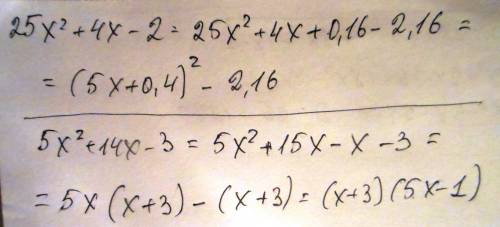 25x² + 4x - 2 = 25x² + 4x + 0,16 - 2,16 =
= (5x + 0,4)² - 2,16
5x² + 14x - 3 = 5x² + 15x - x - 3 =
= 5x (x + 3) - (x + 3) = (x + 3) (5x - 1)